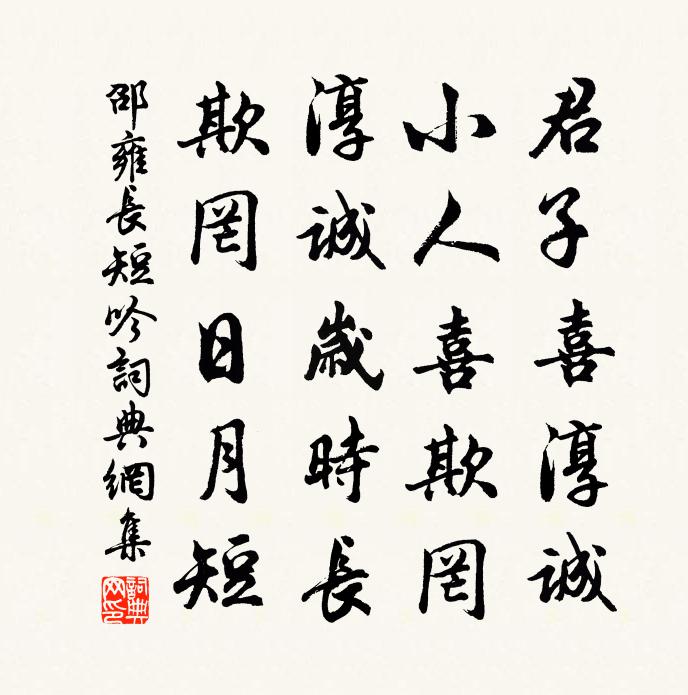 君子喜淳誠
小人喜欺罔
淳誠歲時長
欺罔日月短
邵雍長短吟詞典網集
詞典網印